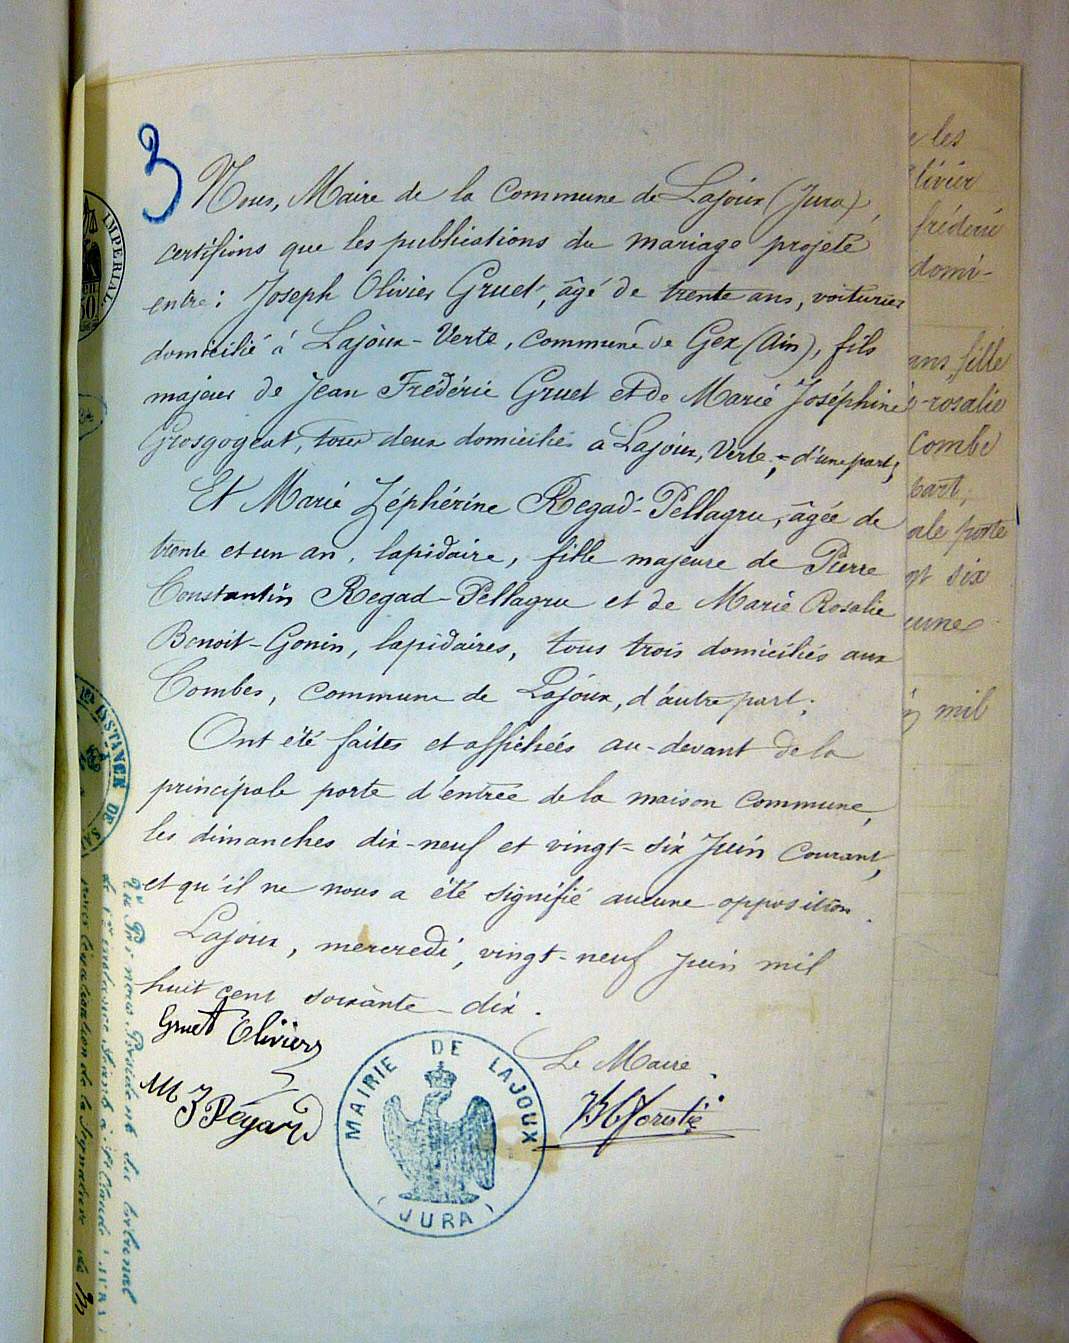 3
Nous, Maire de la Commune de Lajoux (Jura),
certifions que les publications du mariage projeté
entre : Joseph Olivier Gruet, âgé de trente ans, voiturier
domicilié à Lajoux-Verte, commune de Gex (Ain), fils
majeur de Jean Frédéric Gruet et de Marie Joséphine
Grosgogeat, tous deux domiciliés à Lajoux, Verte, - d'une part,
Et Marie Zéphérine Regad-Pellagru, âgée de
trente et un an, lapidaire, fille majeure de Pierre
Constantin Regad-Pellagru et de Marie Rosalie
Benoit-Gonin, lapidaires, tous trois domiciliés aux
Combes, commune de Lajoux, d'autre part,
Ont été faites et affichées au-devant de la
principale porte d'entrée de la maison commune,
les dimanches dix-neuf et vingt-six Juin courant,
et qu'il ne nous a été signifié aucune opposition.
Lajoux, mercredi, vingt-neuf Juin mil
huit cent soixante-dix.
Gruet Olivier
Le Maire
M Z Régad
MAIRIE DE LAJOUX
(JURA)
IMPERIAL
50
INSTANCE DE
les
livier
frédéric
domi-
ans, fille
-rosalie
Combe
part,
ale porte
six
mil